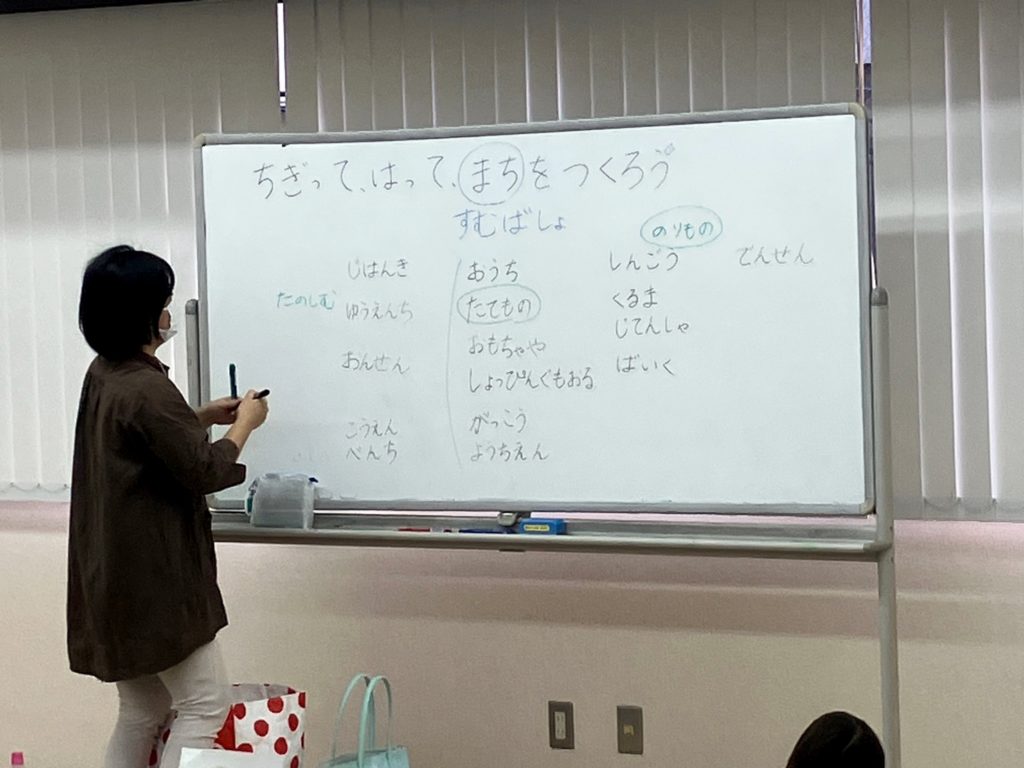 ちぎって、はって、まちをつくろう
すむばしょ
たのしむ
じはんき
ゆうえんち
おんせん
こうえん
べんち
おうち
たてもの
おもちゃや
しょっぴんぐもおる
がっこう
ようちえん
のりもの
しんごう
くるま
じてんしゃ
ばいく
でんせん